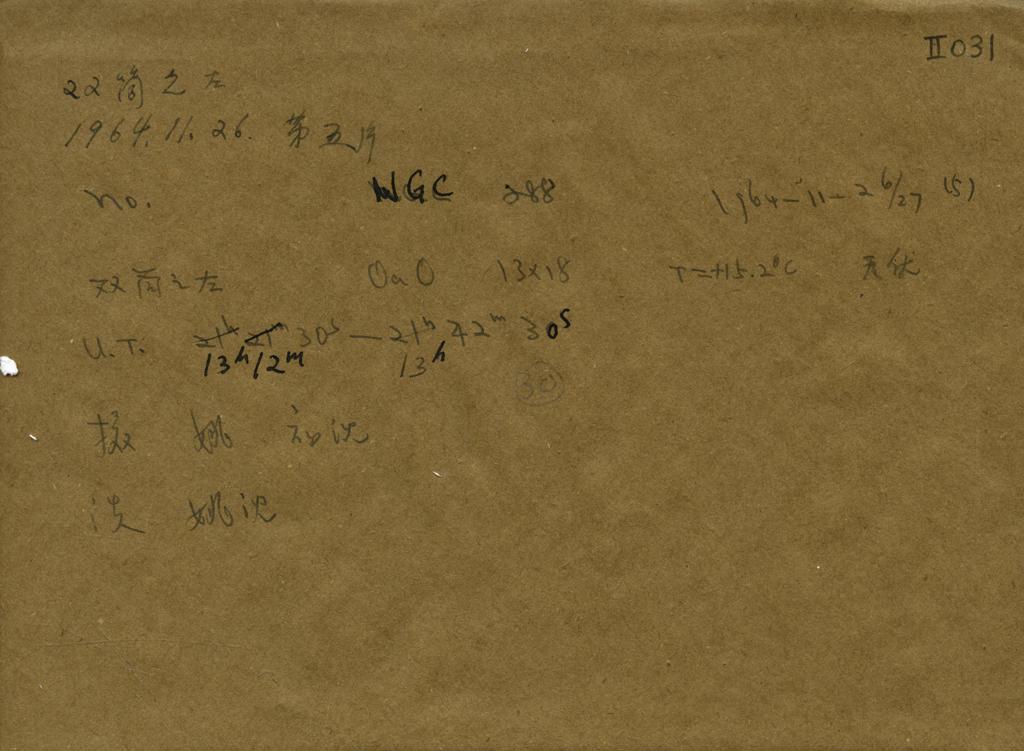 II031
22筒之左
1964.11.26. 第五片
no. NGC 288 1964-11-26/27 (5)
双筒之左 OaO 13×18 T=+15.2°C
U.T. 21h 21m 30s — 21h 42m 30s
13h 12m 13h
30
摄 姚 沈
姚沈